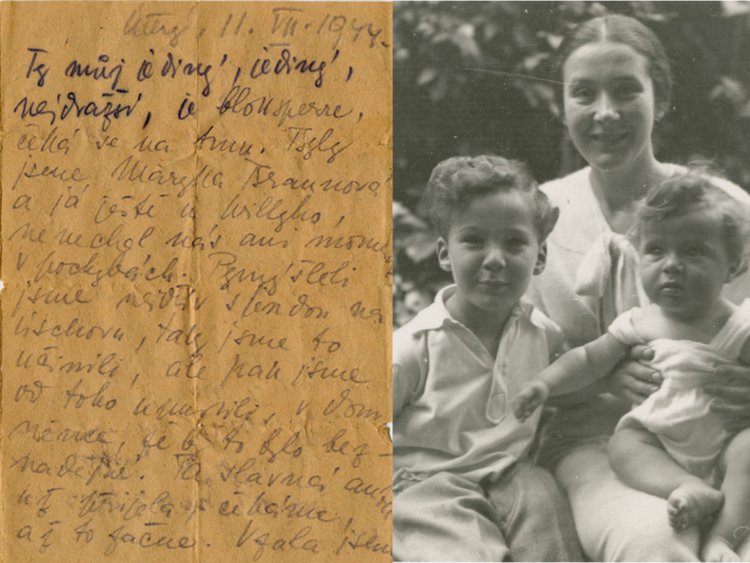 Úterý, 11. VII. 1944.
Ty můj jediný, jediný,
nejdražší, je blocksperre,
čeká se na tmu. Byly
jsme Maryna Braunová
a já ještě u Willyho,
nenechal nás ani
v pochybách. Pomýšleli
jsme nejdřív s londou na
lischovu, taky jsme to
učinili, ale pak jsme
od toho upustili, v dom-
něnce, že by to bylo bez-
nadějné. Ta slavná
už přijela, čekáme,
až to začne. Vzala jsem